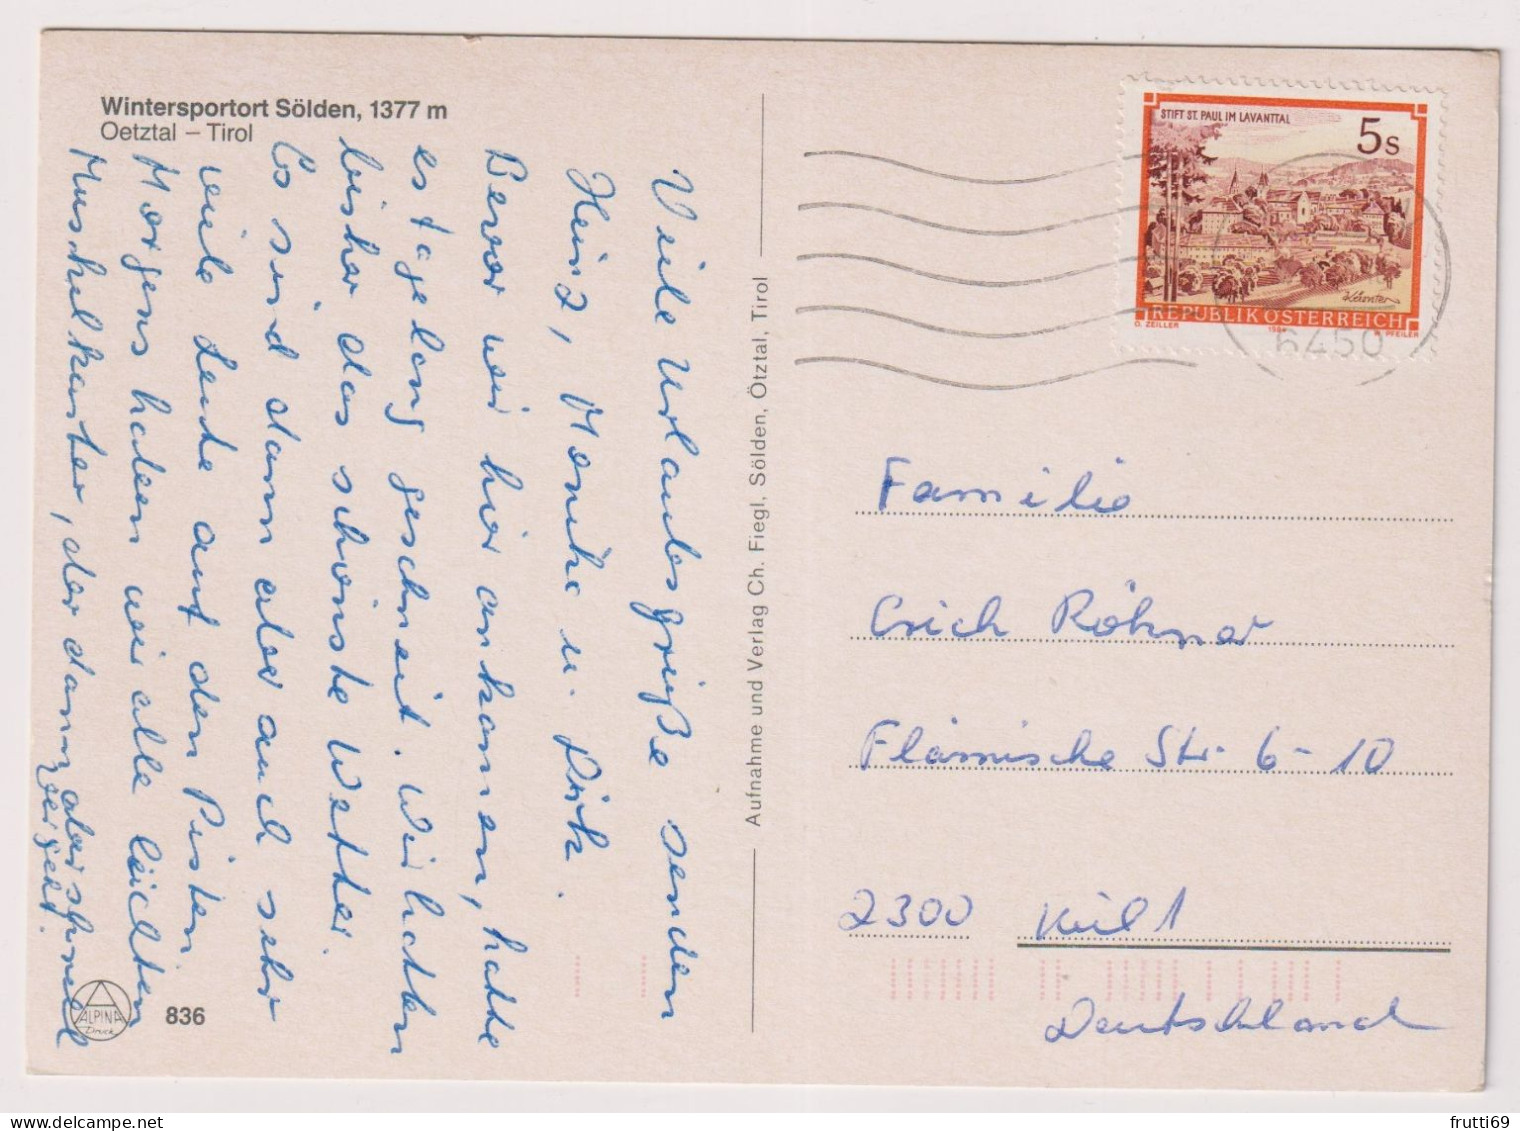 Wintersportort Sölden, 1377 m
Oetztal – Tirol
Viele Urlaubsgrüße senden
Heinz, Monika u. Dirk.
Bevor wir hier ankamen, hatte
es tagelang geschneit. Wir hatten
bisher das schönste Wetter.
Es sind dann aber auch sehr
viele Leute auf den Pisten.
Morgens haben wir alle leichten
Muskelkater, der dann aber schnell
vergeht.
ALPINA
Druck
836
Aufnahme und Verlag Ch. Fiegl, Sölden, Ötztal, Tirol
STIFT ST. PAUL IM LAVANTTAL
5 s
Kärnten
REPUBLIK ÖSTERREICH
O. ZEILLER
1984
K. PFEILER
6450
Familie
Erich Röhner
Flämische Str. 6-10
2300 Kiel 1
Deutschland
frutti69